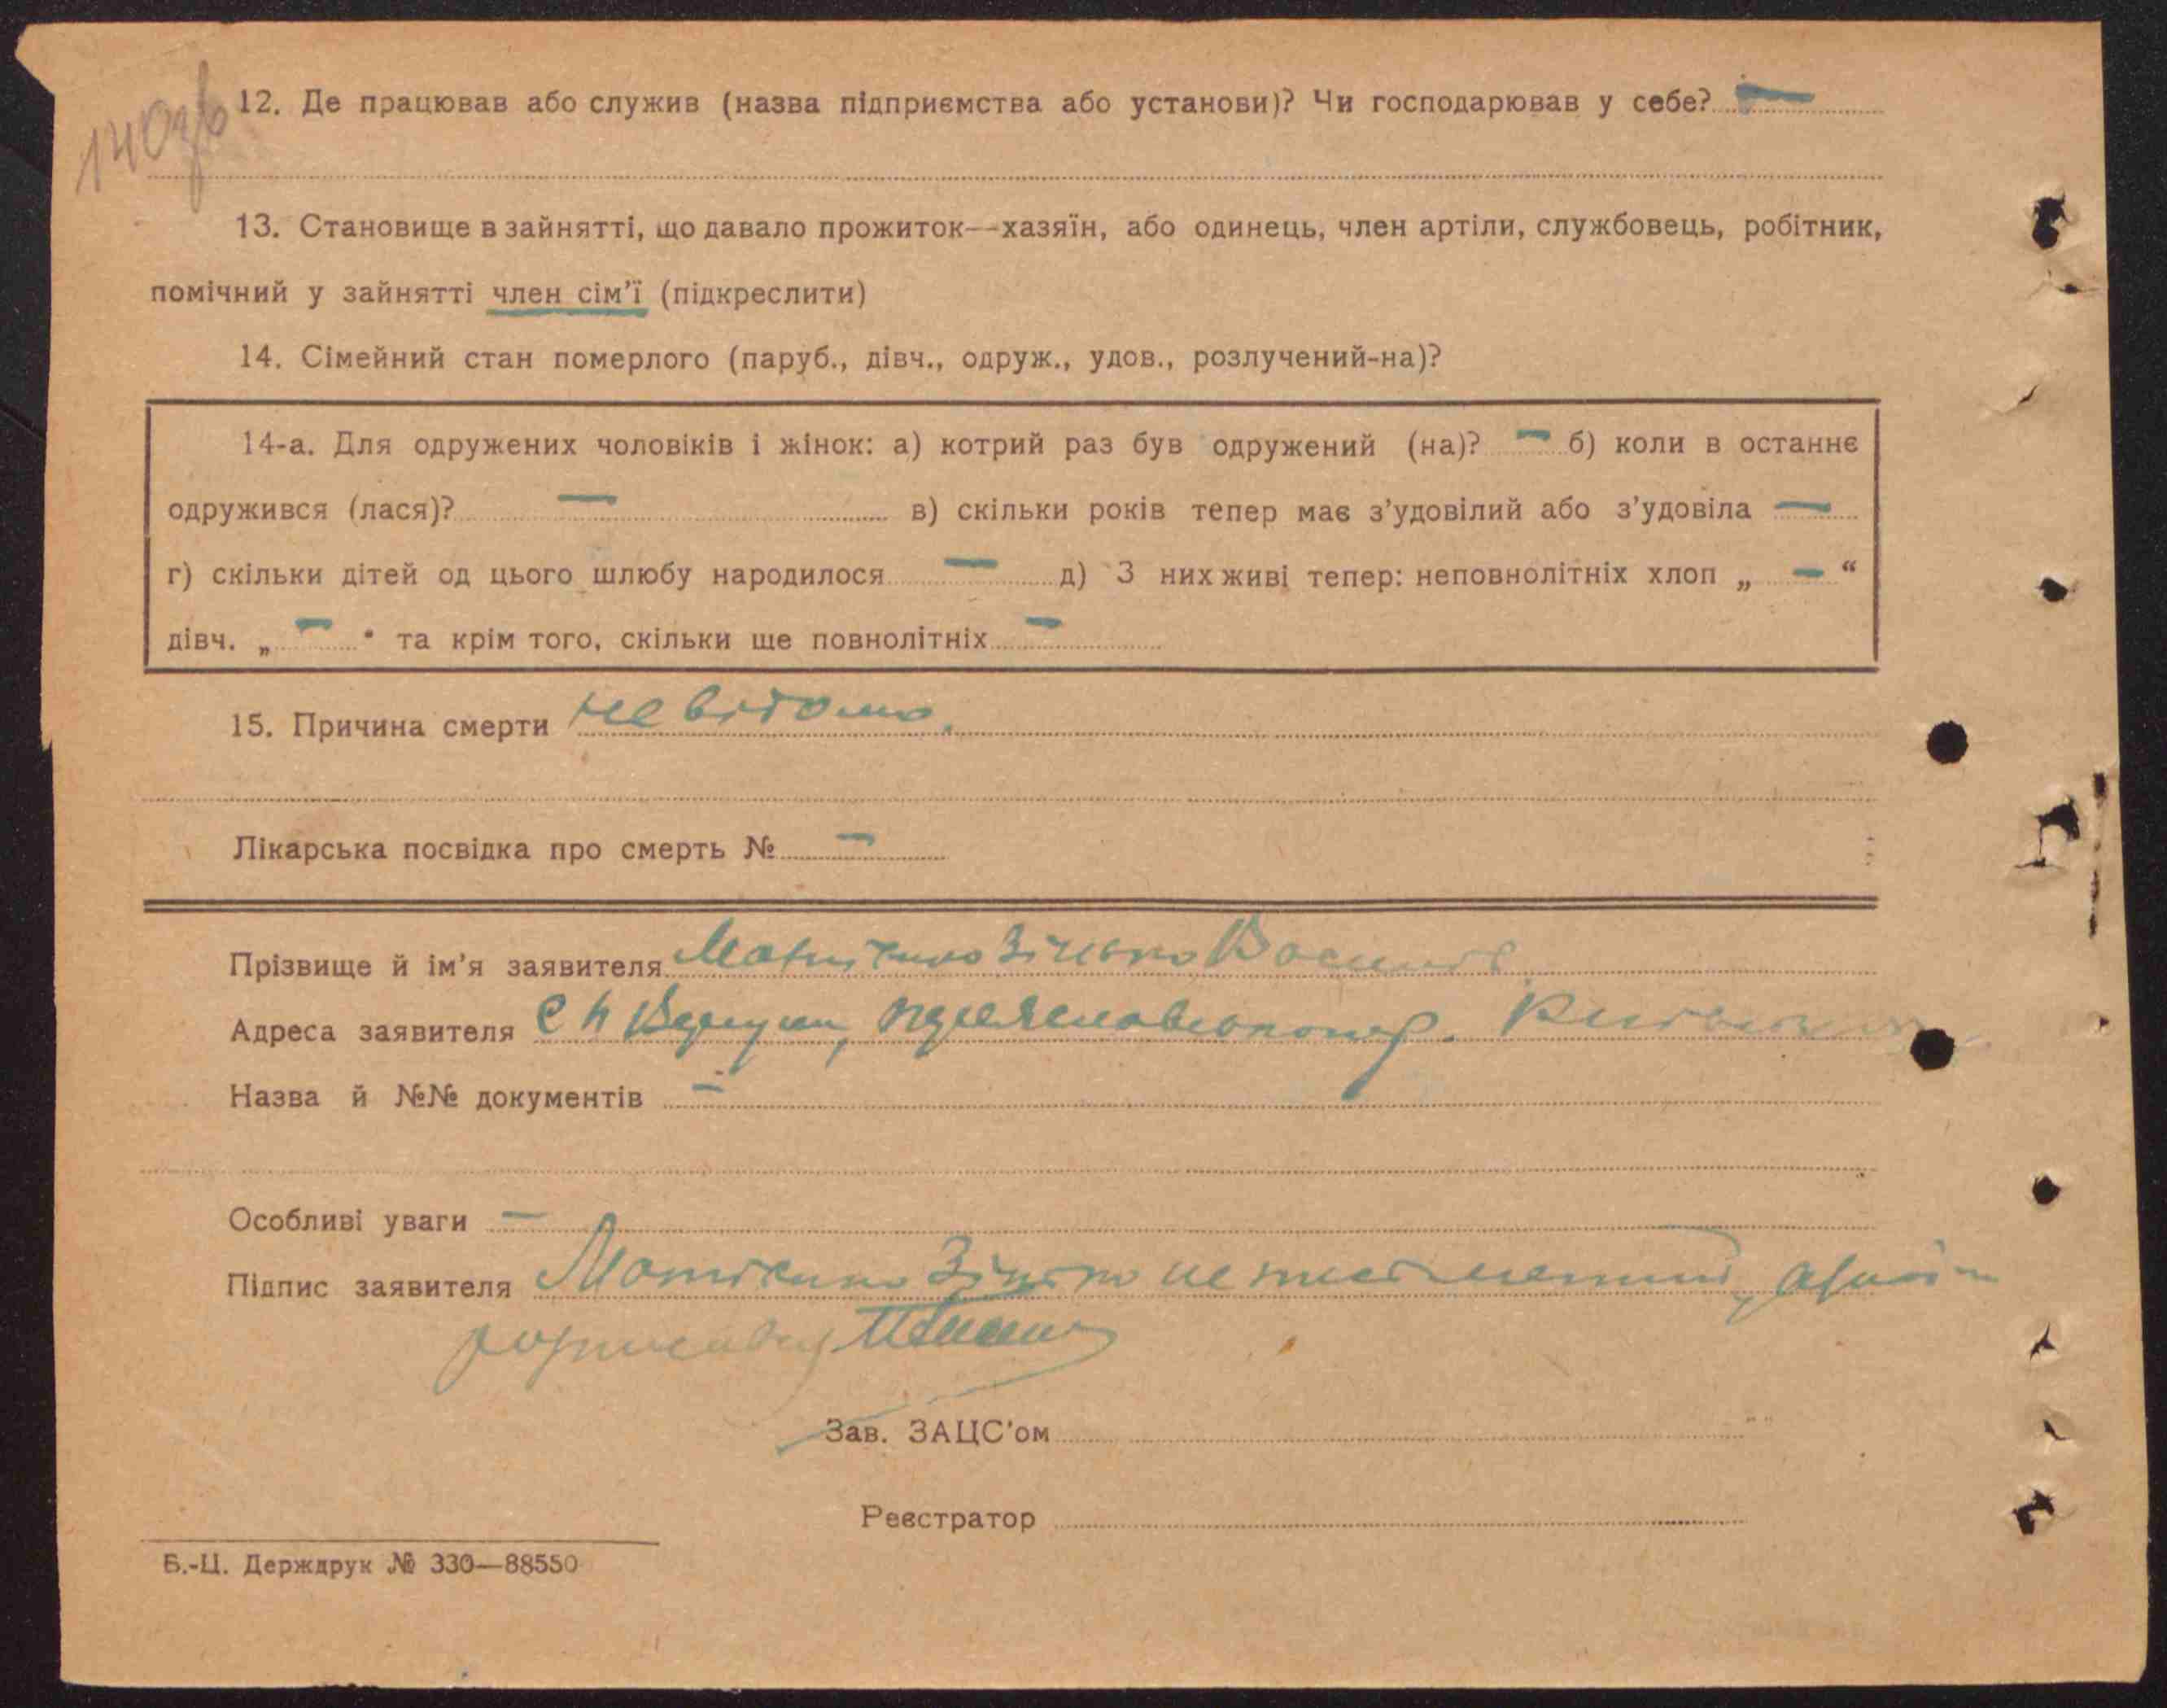 140зв
12. Де працював або служив (назва підприємства або установи)? Чи господарював у себе? —
13. Становище в зайнятті, що давало прожиток—хазяїн, або одинець, член артіли, службовець, робітник,
помічний у зайнятті член сім’ї (підкреслити)
14. Сімейний стан померлого (паруб., дівч., одруж., удов., розлучений-на)?
14-а. Для одружених чоловіків і жінок: а) котрий раз був одружений (на)? — б) коли в останнє
одружився (лася)? — в) скільки років тепер має з’удовілий або з’удовіла —
г) скільки дітей од цього шлюбу народилося — д) З них живі тепер: неповнолітніх хлоп „ — “
дівч. „ — “ та крім того, скільки ще повнолітніх —
15. Причина смерти невідомо.
Лікарська посвідка про смерть № —
Прізвище й ім’я заявителя Зінько
Адреса заявителя
Назва й №№ документів —
Особливі уваги —
Підпис заявителя Зінько не
Зав. ЗАЦС’ом
Реєстратор
Б.-Ц. Держдрук № 330—88550